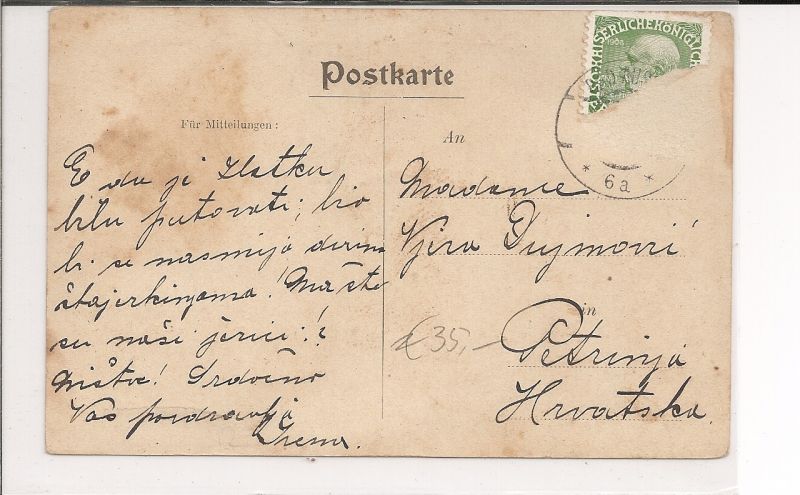 Postkarte
Für Mitteilungen:
E da je Zlatku
bilo putovati; bio
bi se nasmijo
štajerkinjama! Ma što
su naši !?
Ništa! Srdačno
Vas pozdravlja
Irena.
An
Madame
Vjera Dujmović
in
Petrinja
Hrvatska.
€35,-
SERLICHEKÖNIGLICH
1908
6a